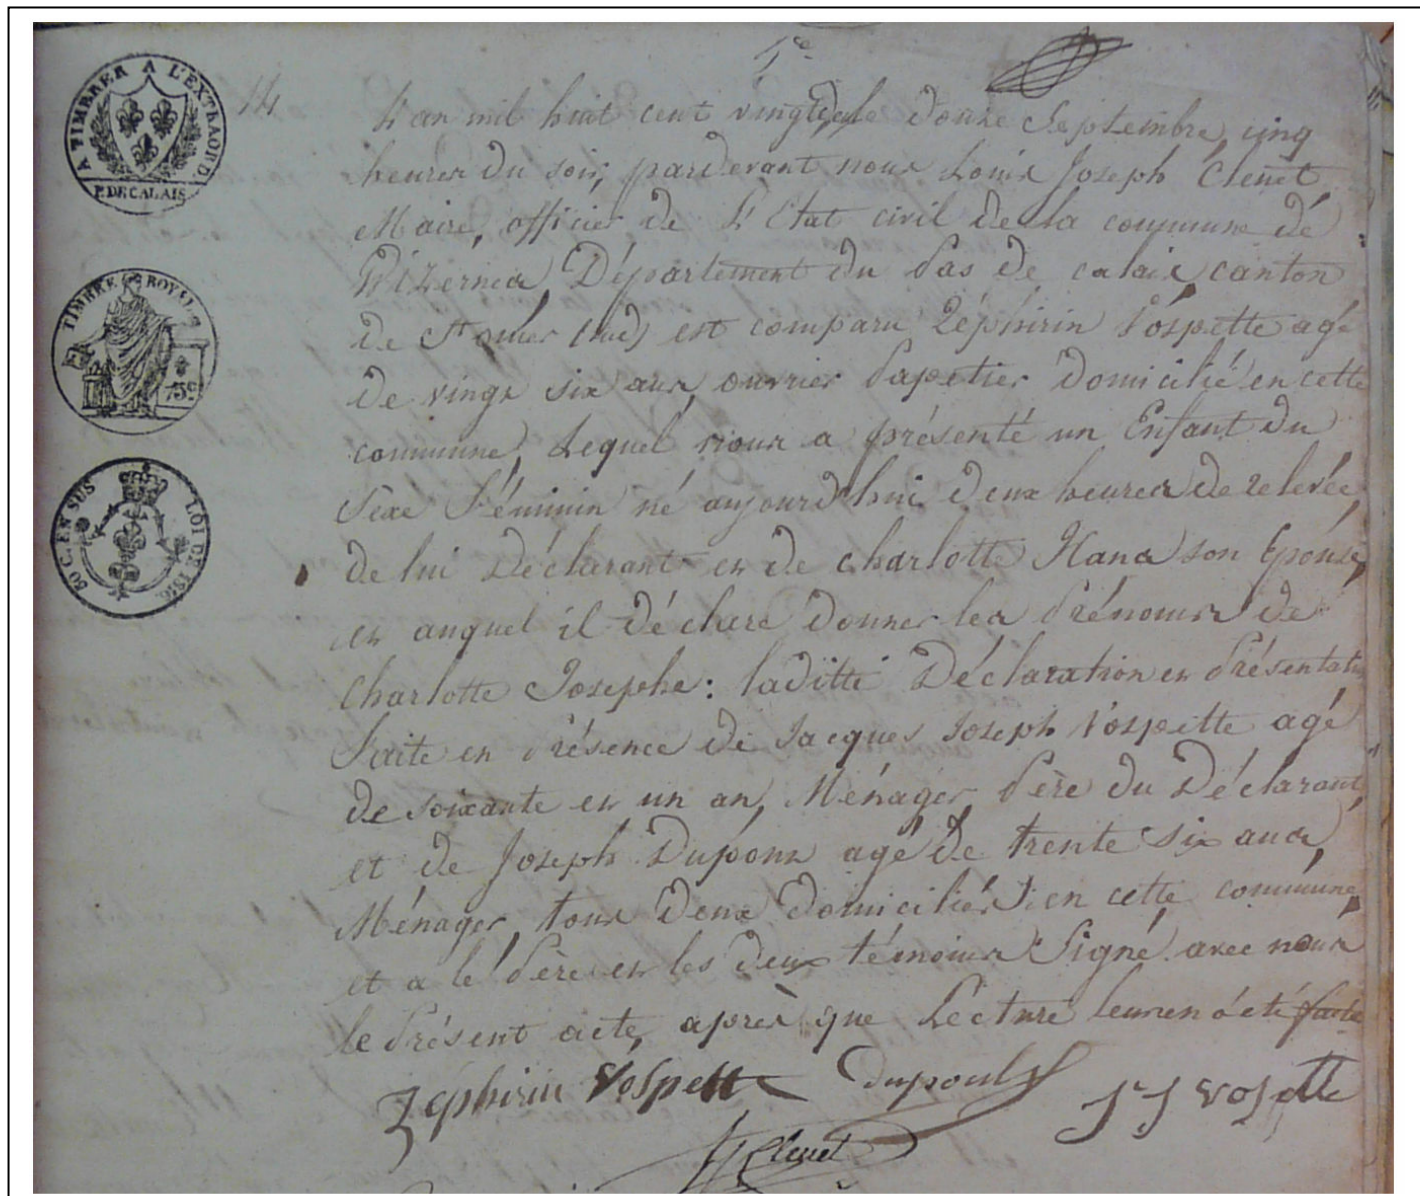 A TIMBRER A L'EXTRAORD.
P. DE CALAIS
TIMBRE ROYAL
75c
50 C. EN SUS
LOI DE 1816
14
L'an mil huit cent vingt le douze Septembre, cinq
heures du soir, pardevant nous Louis Joseph Clenet
Maire, officier de L'Etat civil de la commune de
Wizernes, Département du Pas de calais, canton
de St omer (sud) est comparu Zéphirin Vospette agé
de vingt six ans, ouvrier Papetier domicilié en cette
commune, Lequel nous a présenté un Enfant du
Sexe Féminin né aujourd'hui deux heures de relevée,
de lui Déclarant et de charlotte Hanas son Epouse,
et auquel il déclare donner les Prénoms de
Charlotte Josephe : laditte Déclaration et Présentation
Faite en Présence de Jacques Joseph Vospette agé
de soixante et un an, Ménager, Père du Déclarant,
et de Joseph Dupont agé de trente six ans,
Ménager, tous deux domiciliés en cette commune,
et a le Père et les deux témoins Signé avec nous
le Présent acte, après que Lecture leur en a été faite
Zéphirin Vospette dupont J J vospette
Clenet